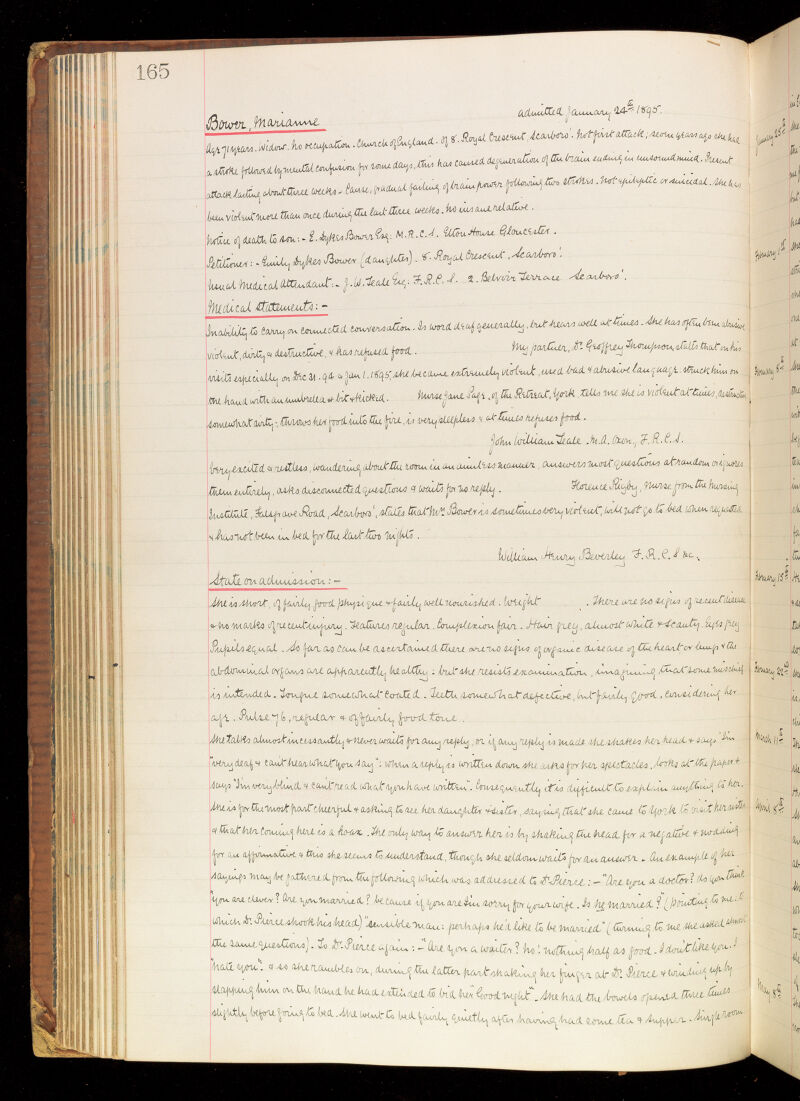 165
admitted January 24th 1895.
Bower, Marianne
Age 71 years. Widow. No occupation. Church of England. Of 8. Royal Crescent Scarboro'. Not first attack; seven years ago she had
a stroke followed by mental confusion for some days, this has caused degeneration of the brain ending in unsound mind. Present
attack lasting about three weeks - Cause, gradual failing of brain power following two strokes. Not epileptic or suicidal. She has
been violent more than once during the last three weeks. No insane relative.
Notice of death to son: - E. Dykes Bower Esq: M.R.C.S. Elton House Gloucester.
Petitioner: - Emily Dykes Bower (daughter). 8. Royal Crescent, Scarboro'.
Usual Medical Attendant: - J. W. Teale Esq: F.R.C.S. 2. Belvoir Terrace Scarboro'.
Medical Statements: -
Inability to carry on connected conversation. Is word deaf generally, but hears well at times. She has often been abusive
violent, dirty & destructive, & has refused food. My partner, Dr. Geoffrey Thompson, states that on his
visits especially on Dec 31. 94 & Jan 1. 1895, she became extremely violent, used bad & abusive language: struck him on
the hand with an umbrella & bit & kicked. Nurse Jane Page, of the Retreat, York, tells me she is violent at times, destructive
somewhat dirty; throws her food into the fire, is very sleepless & at times refuses food.
John William Teale. M.A. Oxon, F.R.C.S.
Very excited & restless, wandering about the room in an aimless manner, answers most questions at random or ignores
them entirely, asks disconnected questions & waits for no reply. Florence Rigby, Nurse from the Nursing
Institute, Falsgrave Road, Scarboro', states that Mrs Bower is sometimes very violent, will not go to bed when requested
& has not been in bed for the last two nights.
William Henry Beverley F.R.C.S. &c.
State on admission: -
She is short, of fairly good physique & fairly well nourished. Weight . There are no signs of recent disease
& no marks of recent injury. Features regular. Complexion fair. Hair grey, almost white & scanty. Eyes grey
Pupils equal. So far as can be ascertained there are no signs of organic disease of the heart or lungs & the
abdominal organs are apparently healthy: but she resists examination, imagining that some mischief
is intended. Tongue somewhat coated. Teeth somewhat defective, but fairly good, considering her
age. Pulse 76, regular & of fairly good tone.
She talks almost incessantly, & never waits for any reply, or if any reply is made she shakes her head & says "I'm
very deaf & can't hear what you say": when a reply is written down she asks for her spectacles, looks at the paper &
says "I'm very blind & can't read what you have written". Consequently it is difficult to explain anything to her.
She is for the most part cheerful & asking to see her daughter & sister, saying that she came to York to visit her sister
& that her coming here is a hoax. The only way to answer her is by shaking the head for a negative & nodding
for an affirmative & this she seems to understand, though she seldom waits for an answer. An example of her
sayings may be gathered from the following which was addressed to Dr. Pierce: - "Are you a doctor? do you think
you are clever? Are you married? because if you are I'm sorry for your wife. Is he married?" (pointing to me: to
which Dr. Pierce shook his head) "sensible man: perhaps he'd like to be married" (turning to me she asked almost
the same questions). To Dr. Pierce again: - "Are you a waiter? no! nothing half as good. I don't like you. I
hate you". & so she rambles on, during the latter part shaking her finger at Dr. Pierce & winding up by
slapping him on the hand he had extended to bid her "Good night". She had the bowels opened three times
slightly before going to bed. She went to bed fairly quietly after having had some tea & supper. Single room
January 25th
February 1st
February 8th
February 15th
February 22nd
March 11th
April 8th
May 8th